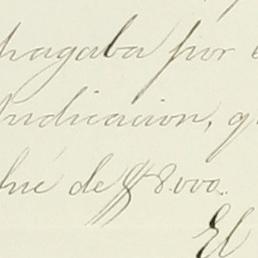 pagaba por
Indicacion, q
fué de $8.000.
El